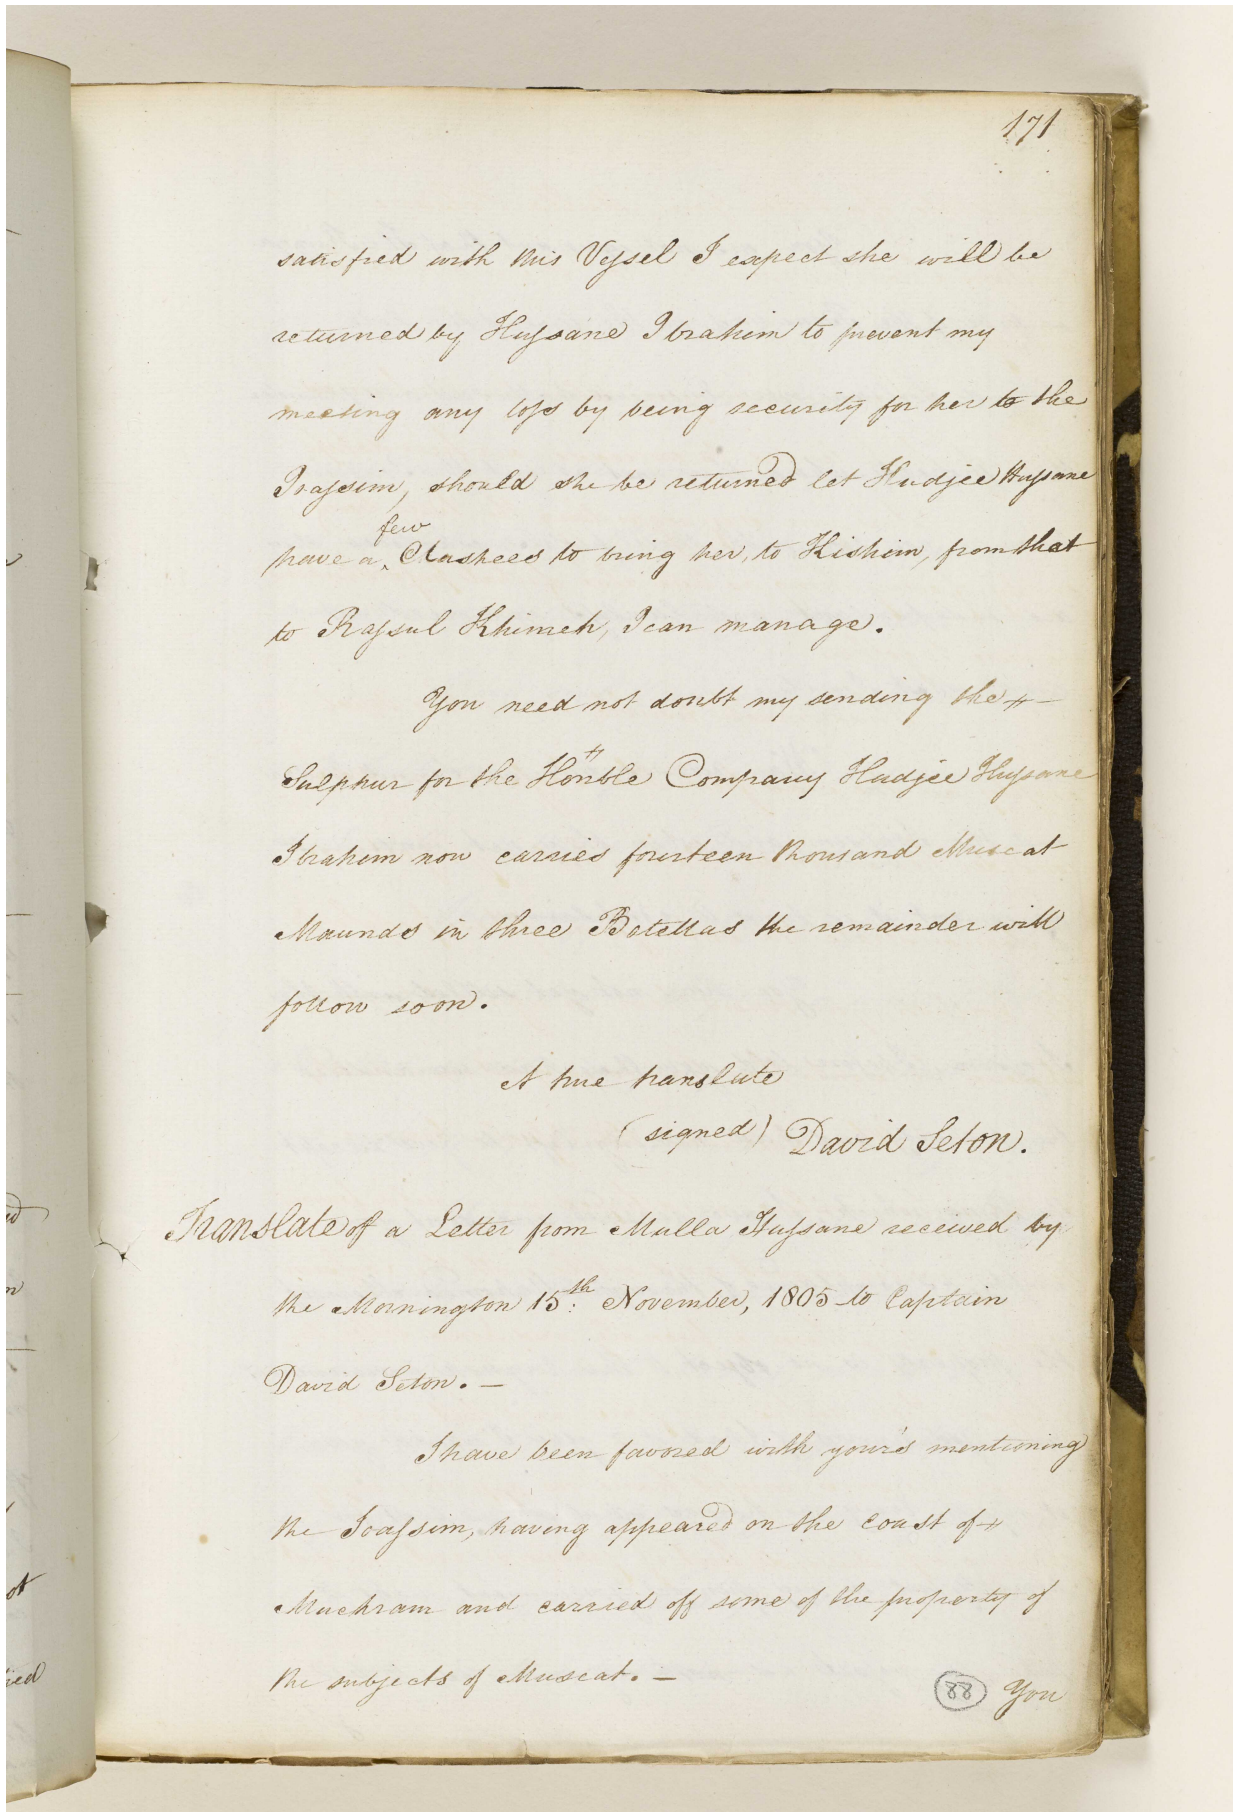 171
satisfied with this Vessel I expect she will be
returned by Hussane Ibrahim to prevent my
meeting any loss by being security for her to the
Joassim, should she be returned let Hadjee Hussane
few
have a Clashees to bring her, to Kishim, from that
to Rassul Khimeh, I can manage.
You need not doubt my sending the
Sulphur for the Honble Company Hadjee Hussane
Ibrahim now carries fourteen thousand Muscat
Maunds in three Botellas the remainder will
follow soon.
A true translate
(signed) David Seton.
Translate of a Letter from Mulla Hussane received by
the Mornington 15th November, 1805 to Captain
David Seton. —
I have been favored with your's mentioning
the Joassim, having appeared on the coast of
Muckram and carried off some of the property of
the subjects of Muscat. —
88 You